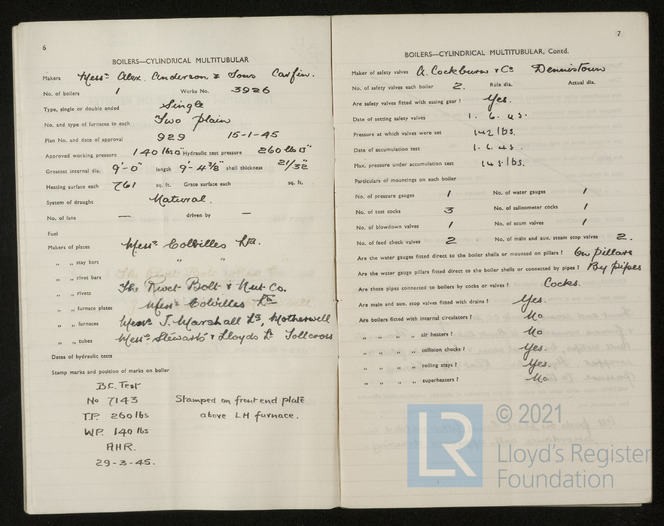 6
BOILERS—CYLINDRICAL MULTITUBULAR
Makers Messrs Alex. Anderson & Sons Carfin.
No. of boilers 1 Works No. 3926
Type, single or double ended Single
No. and type of furnaces in each Two plain
Plan No. and date of approval 929 15-1-45
Approved working pressure 140 lbs □" Hydraulic test pressure 260 lbs □"
Greatest internal dia. 9'-0" length 9'-4 3/8" shell thickness 21/32"
Heating surface each 761 sq. ft. Grate surface each sq. ft.
System of draught Natural.
No. of fans — driven by —
Fuel
Makers of plates Messrs Colvilles Ltd.
„ „ stay bars „ „
„ „ rivet bars
„ „ rivets The Rivet Bolt & Nut Co.
„ „ furnace plates Messrs Colvilles Ltd
„ „ furnaces Messrs J. Marshall Ld, Motherwell
„ „ tubes Messrs Stewarts & Lloyds Ld Tollcross
Dates of hydraulic tests
Stamp marks and position of marks on boiler
B.C. Test
No 7143 Stamped on front end plate
T.P. 260 lbs above LH furnace.
W.P. 140 lbs
A.H.R.
29-3-45.
7
BOILERS—CYLINDRICAL MULTITUBULAR, Contd.
Maker of safety valves A. Cockburn & Co Dennistoun
No. of safety valves each boiler 2. Rule dia. Actual dia.
Are safety valves fitted with easing gear? Yes.
Date of setting safety valves 1. 6. 45.
Pressure at which valves were set 142 lbs.
Date of accumulation test 1. 6. 45.
Max. pressure under accumulation test 145 lbs.
Particulars of mountings on each boiler
No. of pressure gauges 1 No. of water gauges 1
No. of test cocks 3 No. of salinometer cocks 1
No. of blowdown valves 1 No. of scum valves 1
No. of feed check valves 2 No. of main and aux. steam stop valves 2.
Are the water gauges fitted direct to the boiler shells or mounted on pillars? On pillars
Are the water gauge pillars fitted direct to the boiler shells or connected by pipes? By pipes
Are these pipes connected to boilers by cocks or valves? Cocks.
Are main and aux. stop valves fitted with drains? Yes.
Are boilers fitted with internal circulators? No
„ „ „ „ air heaters? No
„ „ „ „ collision chocks? Yes.
„ „ „ „ rolling stays? Yes.
„ „ „ „ superheaters? No
LR © 2021
Lloyd's Register
Foundation